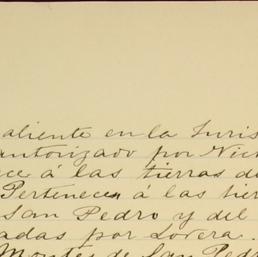 aliente en la Juris
autorizado por Nic
ce á las tierras d
Pertenecen á las tier
San Pedro y del
adas por Lovera.
Montes de San Pedr